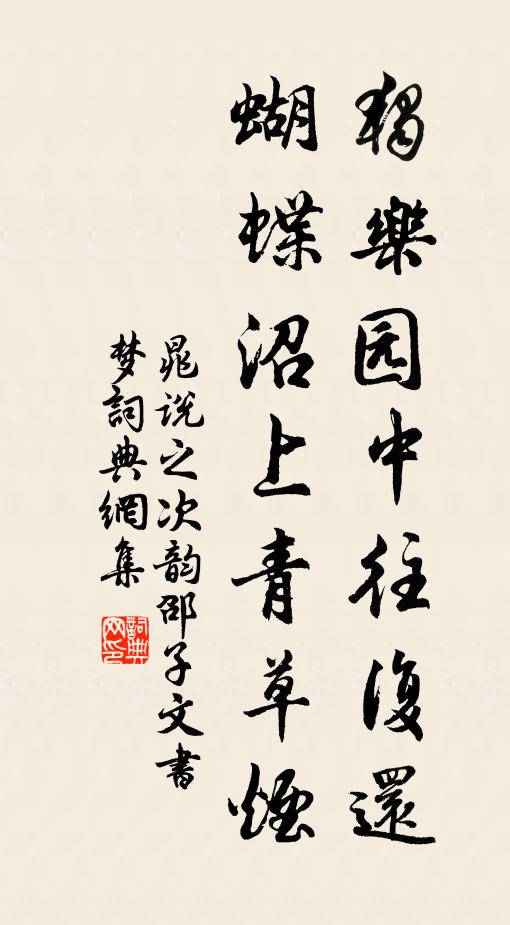 獨樂园中往復還
蝴蝶沼上青草煙
晁説之次韵邵子文書
梦詞典網集
詞典网印